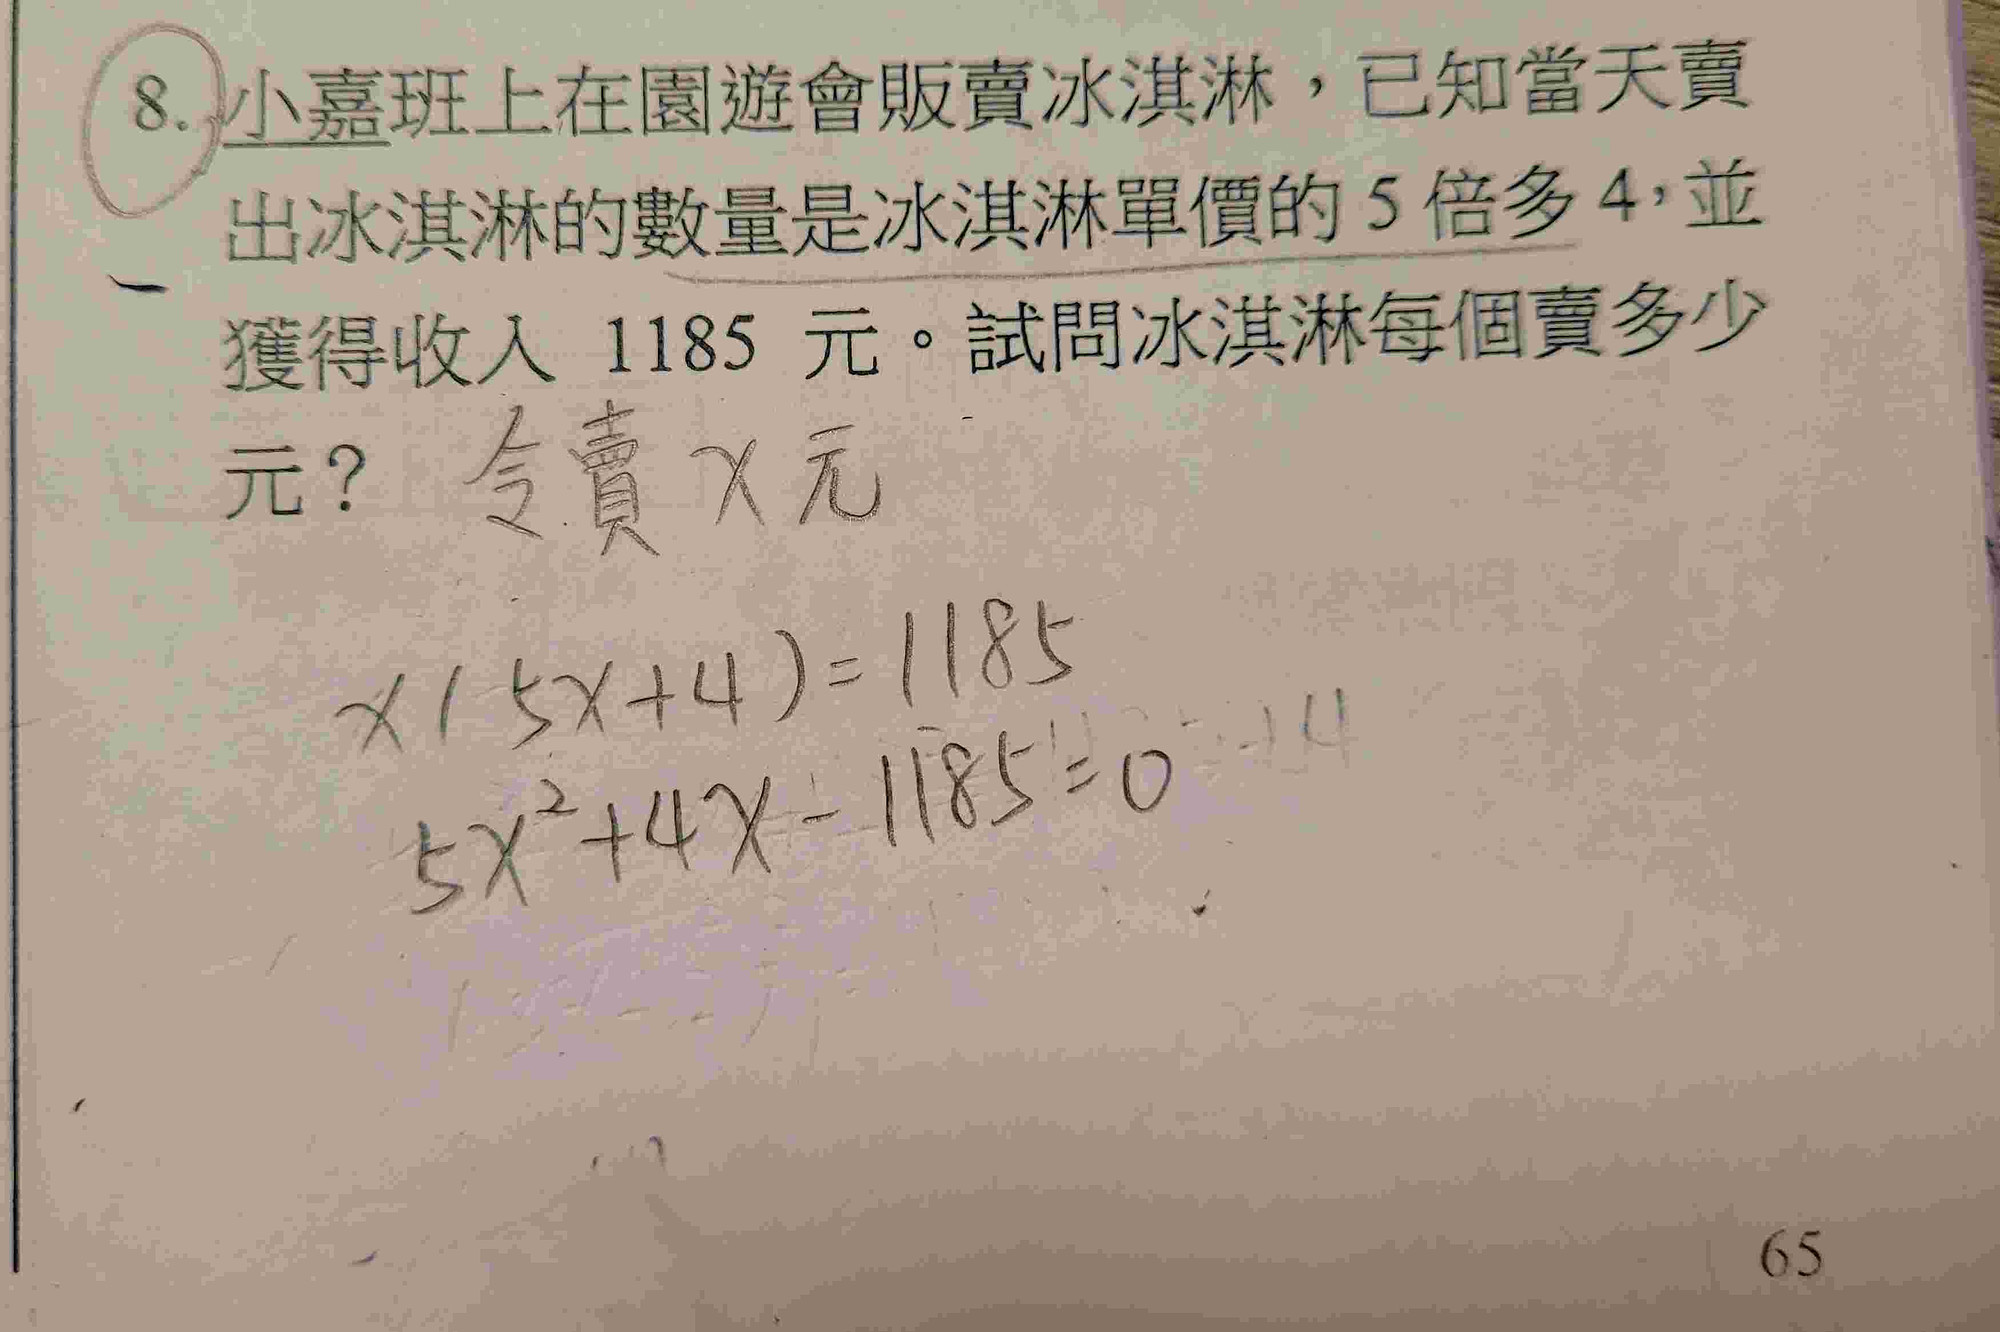 8. 小嘉班上在園遊會販賣冰淇淋，已知當天賣
出冰淇淋的數量是冰淇淋單價的 5 倍多 4，並
獲得收入 1185 元。試問冰淇淋每個賣多少
元？ 令賣 x 元
x(5x+4)=1185
5x²+4x-1185=0
65